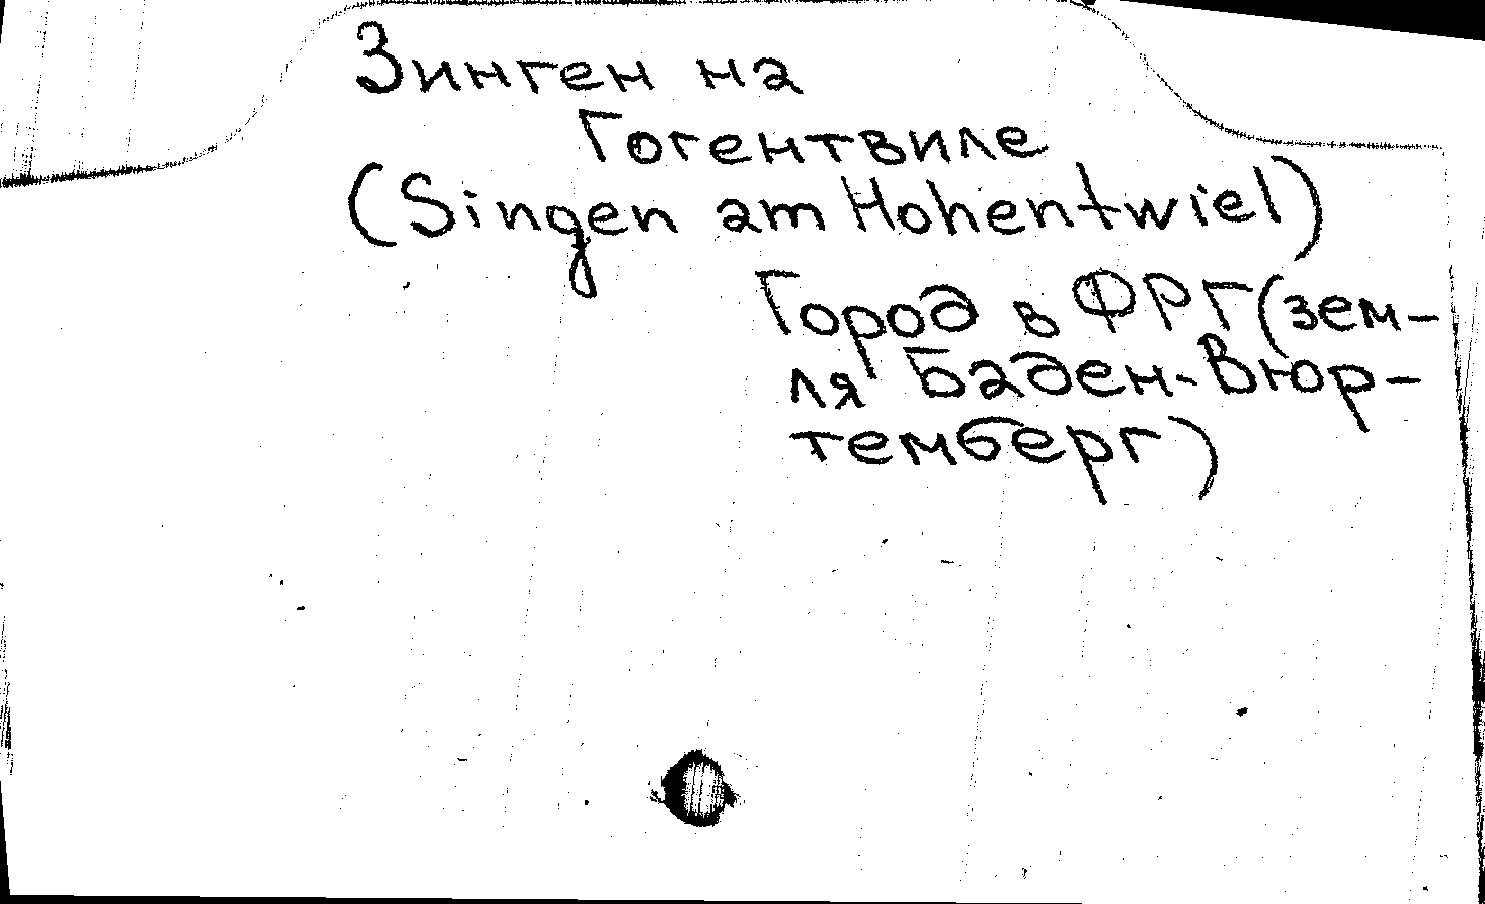 Зинген на
Гогентвиле
(Singen am Hohentwiel)
Город в ФРГ (зем-
ля Баден-Вюр-
темберг)